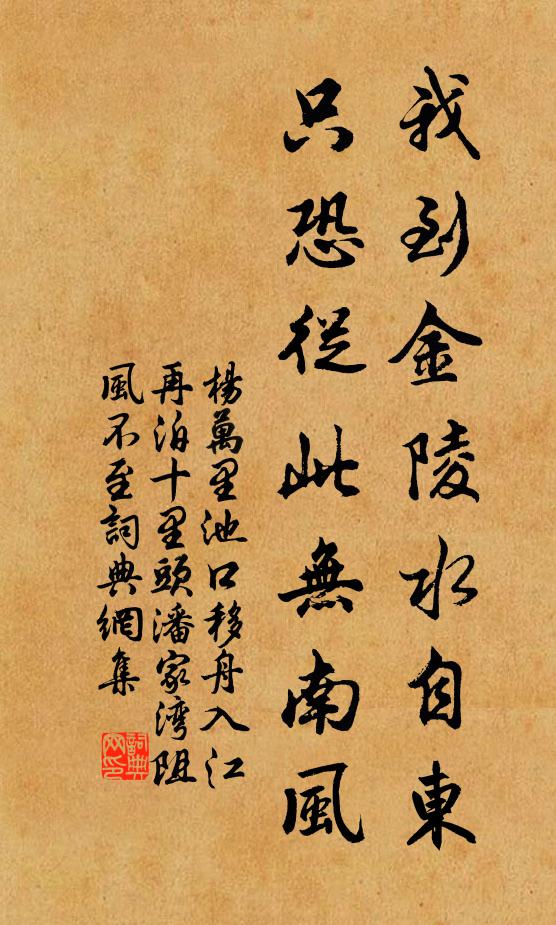 我到金陵水自東
只恐從此無南風
楊萬里池口移舟入江
再泊十里頭潘家灣阻
風不至詞典網集
詞典网印